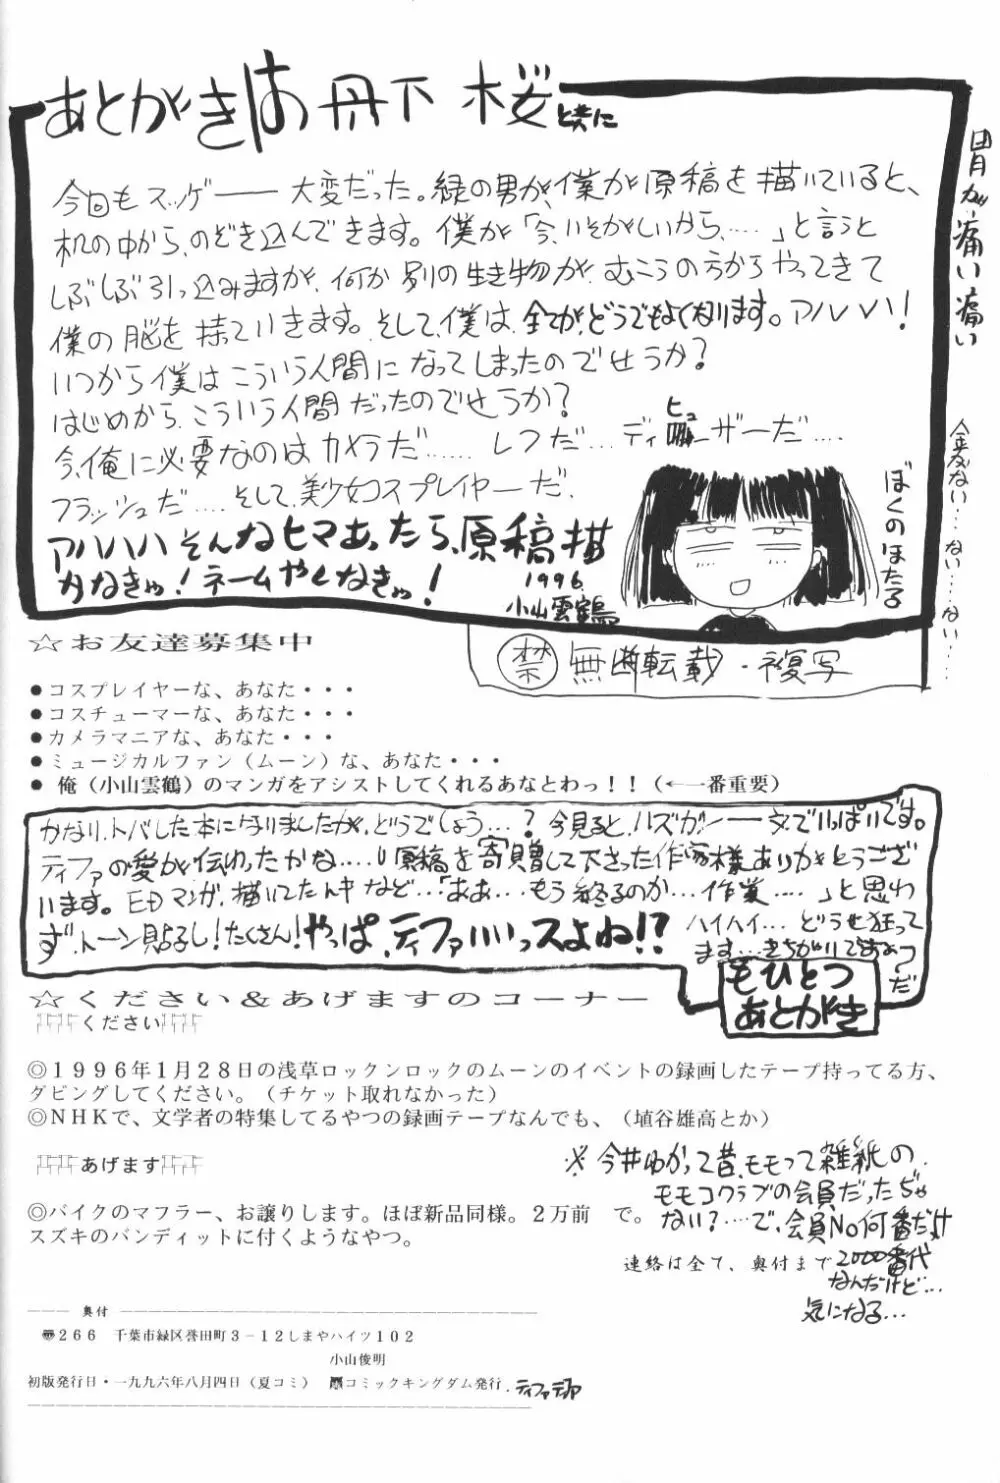 あとがきは 丹下 桜と共に
今回もスッゲー―― 大変だった。緑の男が、僕が原稿を描いていると、
机の中から、のぞき込んできます。僕が「今、いそがしいから、……」と言うと
しぶしぶ引っ込みますが、何か別の生き物が、むこうの方からやってきて
僕の脳を持っていきます。そして、僕は、全てが、どうでもよくなります。アハハハ!
いつから僕はこういう人間になってしまったのでせうか?
はじめから、こういう人間だったのでせうか?
今、俺に必要なのはカメラだ…… レフだ…ディヒューザーだ….
フラッシュだ….. そして、美少女コスプレイヤーだ.
アハハハ そんなヒマあったら、原稿描
かなきゃ!ネームやんなきゃ!
1996
小山雲鶴
ぼくのほたる
胃が痛い痛い
金がない…. ない….ない….
禁 無断転載・複写
☆お友達募集中
●コスプレイヤーな、あなた・・・
●コスチューマーな、あなた・・・
●カメラマニアな、あなた・・・
●ミュージカルファン(ムーン)な、あなた・・・
● 俺(小山雲鶴)のマンガをアシストしてくれるあなとわっ!!(←一番重要)
かなり、トバした本になりましたが、どうでしょう…?今見ると、ハズカシー―文でいっぱいです。
ティファの愛が伝わったかな….。原稿を寄贈して下さった作家様ありがとうござ
います。EDマンガ、描いてた時など…「ああ…もう終るのか…作業….」と思わ
ず、トーン貼るし!たくさん!やっぱ、ティファいいっスよね!?
ハイハイ…どうせ狂って
ます…きちがいであぁつ
だ
もひとつ
あとがき
☆ください&あげますのコーナー
ください
◎1996年1月28日の浅草ロックンロックのムーンのイベントの録画したテープ持ってる方、
ダビングしてください。(チケット取れなかった)
◎NHKで、文学者の特集してるやつの録画テープなんでも、(埴谷雄高とか)
あげます
◎バイクのマフラー、お譲りします。ほぼ新品同様。2万前 で。
スズキのバンディットに付くようなやつ。
※ 今井ゆかって昔、モモって雑紙の
モモコクラブの会員だったぢゃ
ない?….で、会員No何番だっけ
2000番代
なんだけど…
気になる…
連絡は全て、奥付まで
奥付
〠266 千葉市緑区誉田町3-12しまやハイツ102
小山俊明
初版発行日・一九九六年八月四日(夏コミ) コミックキングダム発行.ティファデア